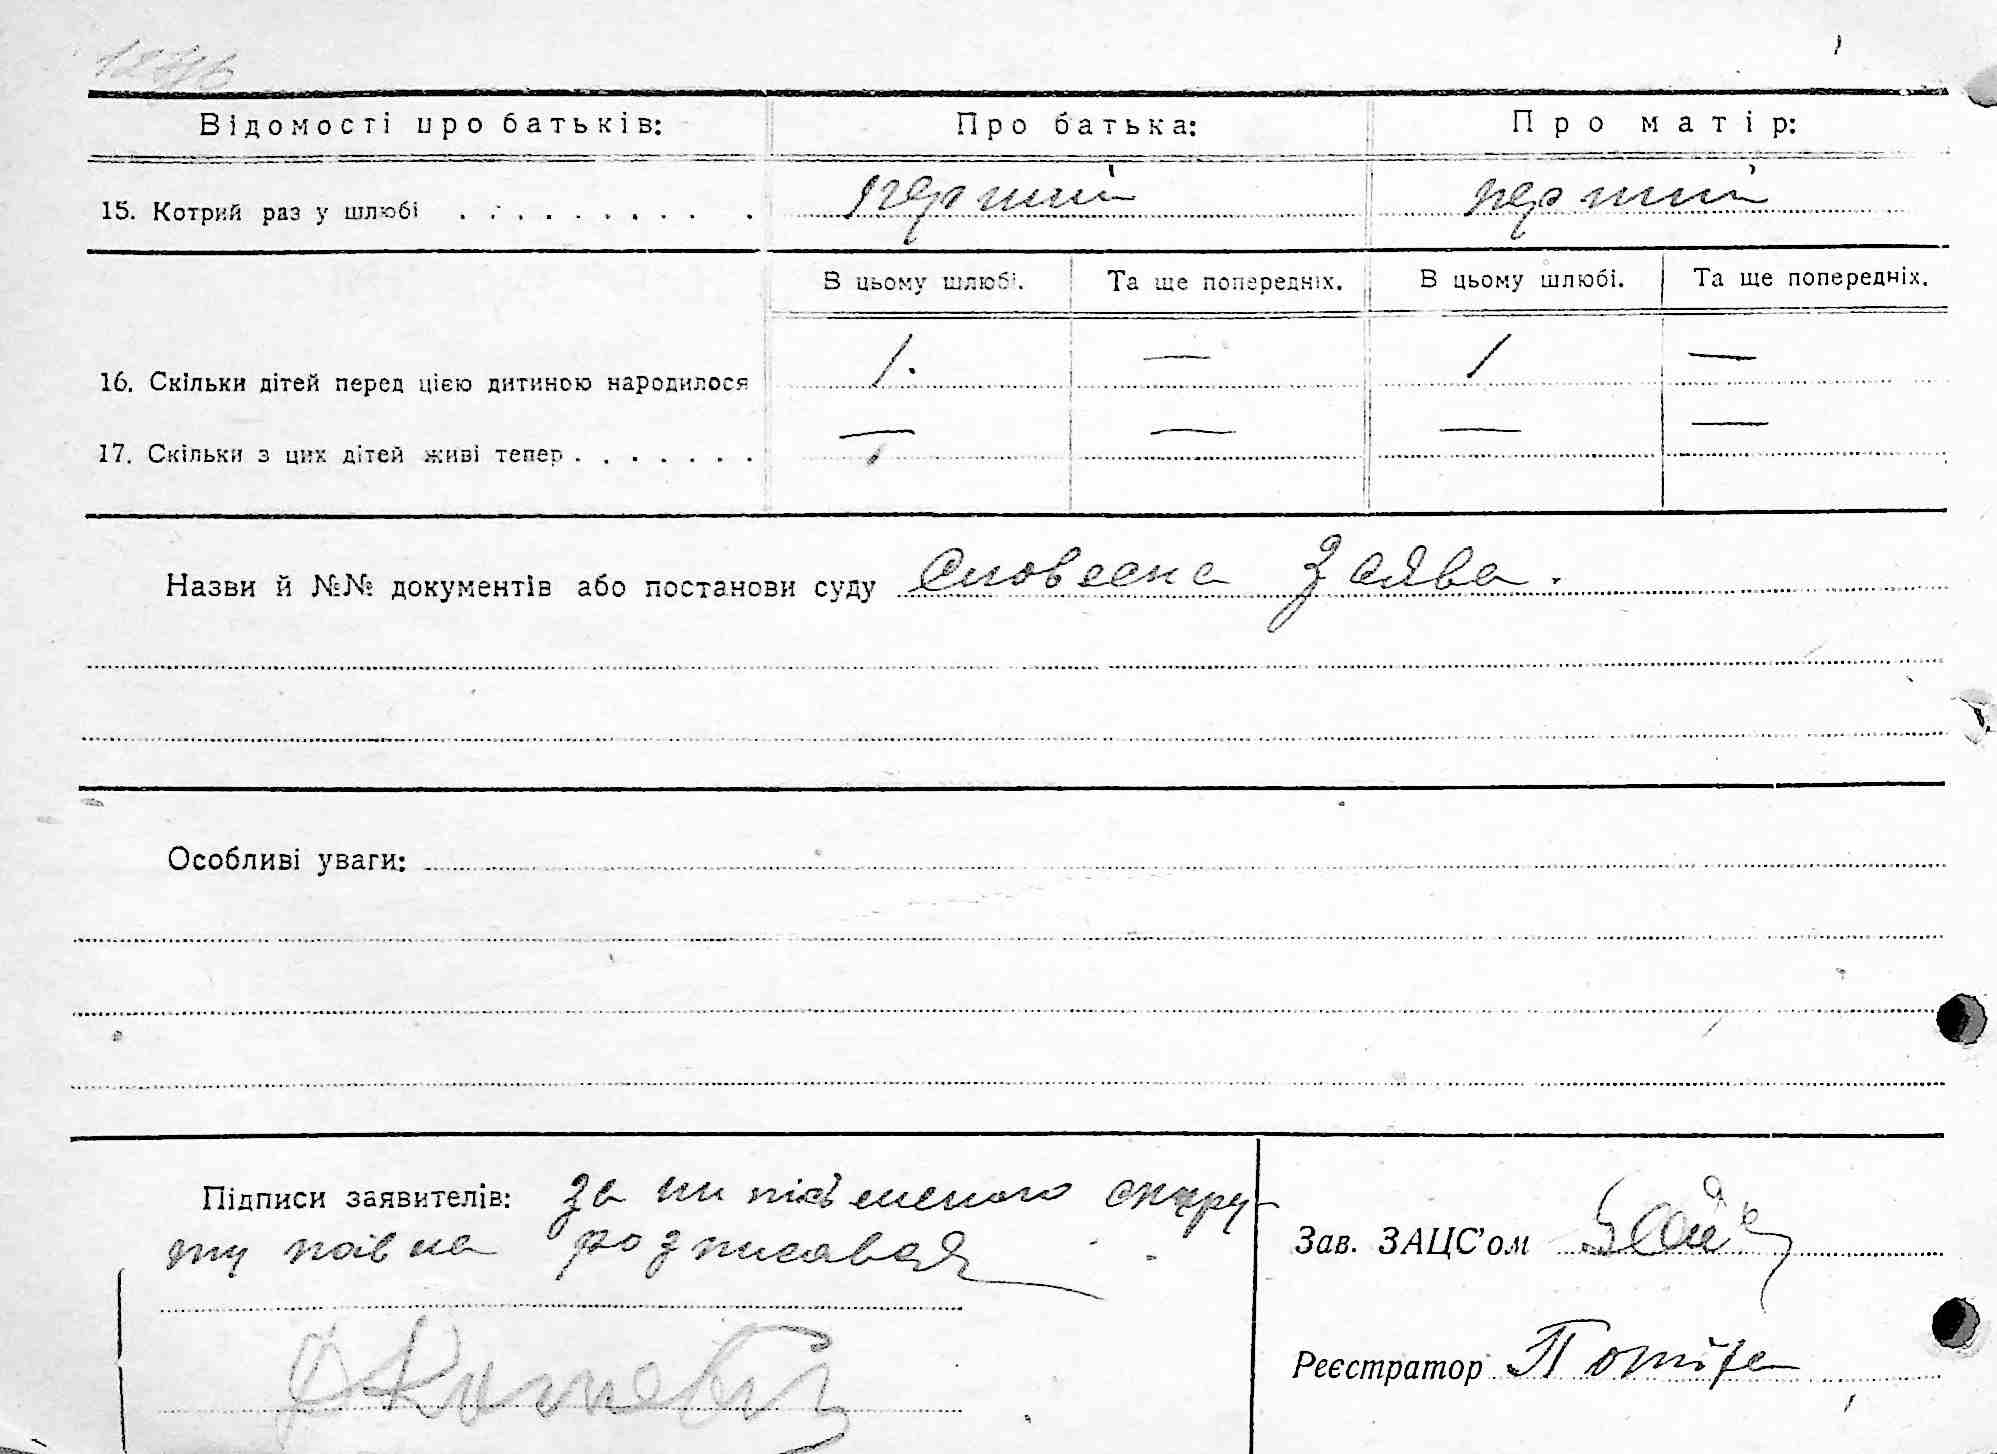 Відомості про батьків: Про батька: Про матір:
15. Котрий раз у шлюбі . . . . . . . . . . перший перший
В цьому шлюбі. Та ще попередніх. В цьому шлюбі. Та ще попередніх.
16. Скільки дітей перед цією дитиною народилося 1. — 1 —
17. Скільки з цих дітей живі тепер . . . . . . . — — — —
Назви й №№ документів або постанови суду Словесна заява.
Особливі уваги:
Підписи заявителів: за
розписавая
Зав. ЗАЦС'ом
Реєстратор